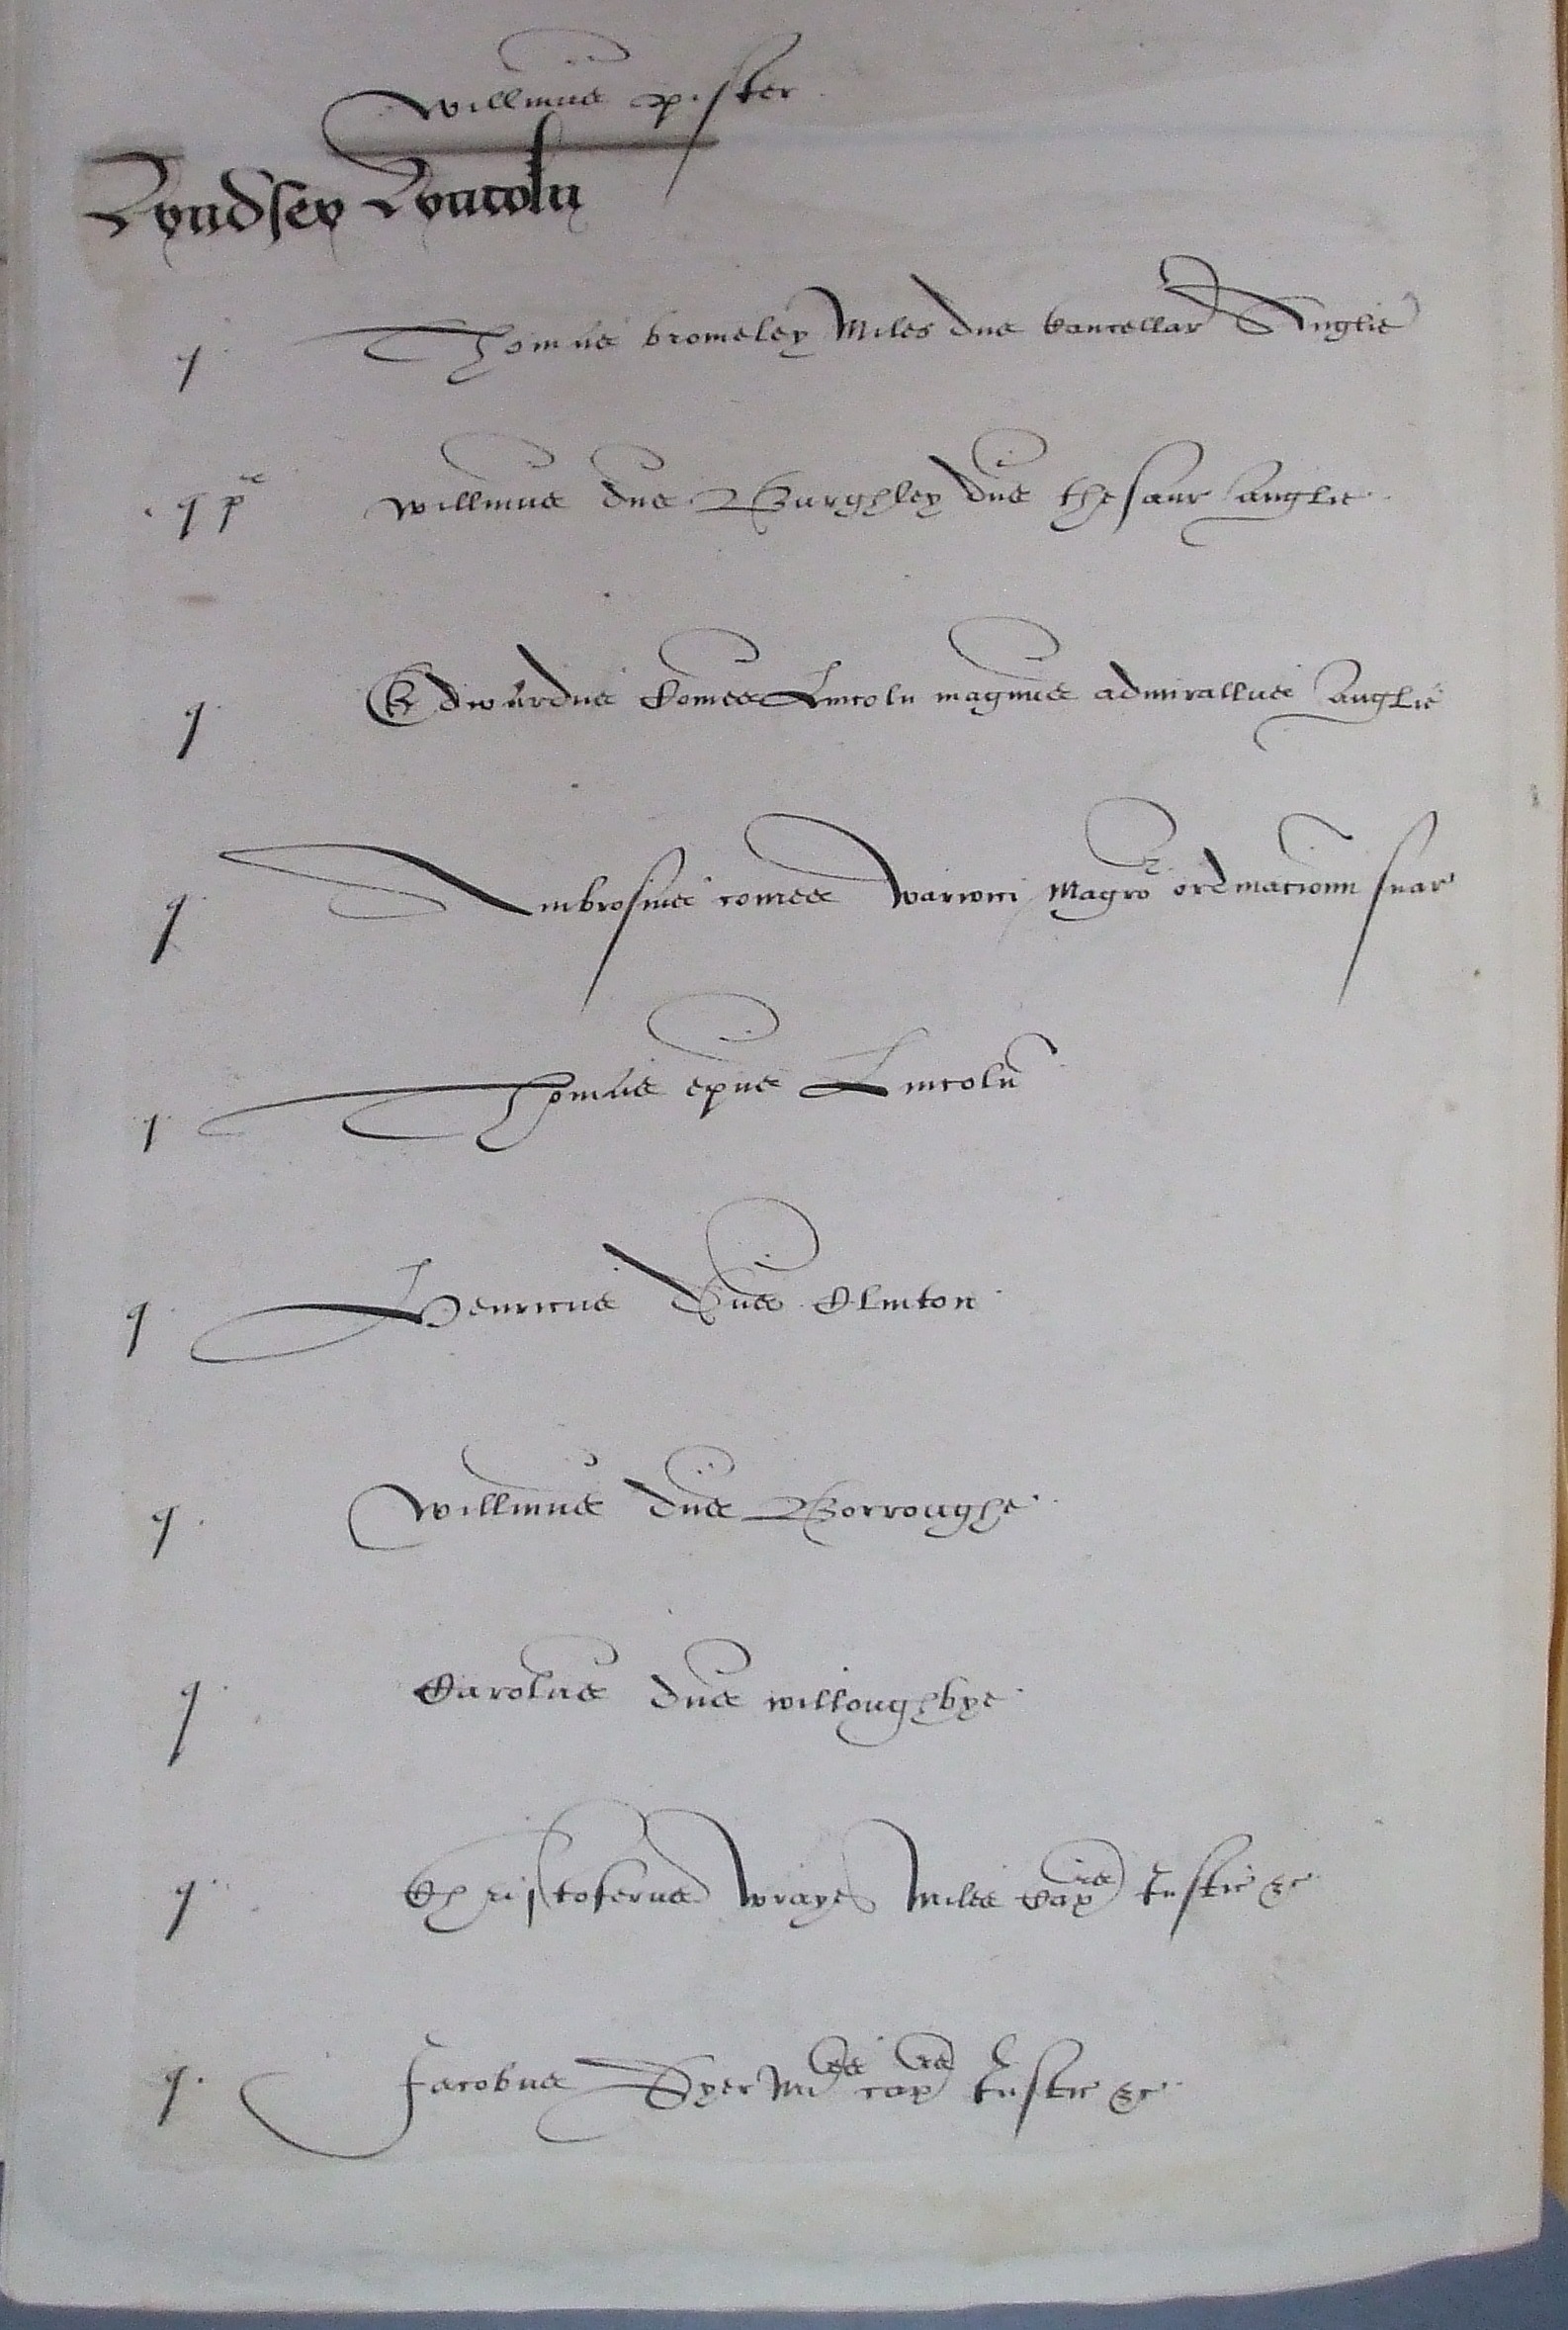 Willmus p.ster
Lyndsey Lyncoln
q Thomas bromeley Miles dns Cancellar Anglie
q p Willmus dns Burghley dns thesaur Anglie
q Edwardus Comes Lincoln magnus admirallus Anglie
q Ambrosius comes Warwici Magro ordinacionn suar
q Thomas epus Lincoln
q Henricus Dns Clinton
q Willmus dns Borroughe
q Carolus dns willoughbye
q Christoferus Wraye Miles Cap Justic &c
q Jacobus Dyer Miles cap Justic &c